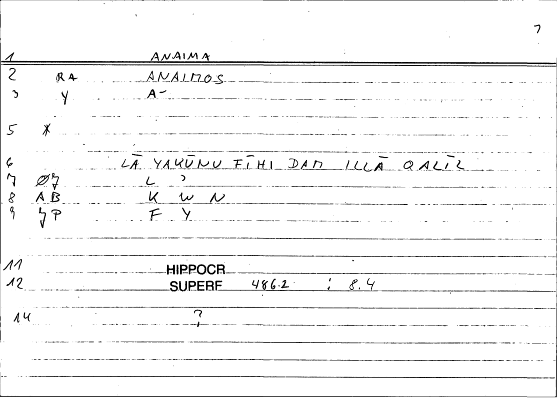 7
1 ANAIMA
2 RA ANAIMOS
3 Y A-
5 *
6 LĀ YAKŪNU FĪHI DAM ILLĀ QALĪL
7 L ʾ
8 AB K W N
9 P F Y
11 HIPPOCR
12 SUPERF 486.2 : 8.4
14 ?